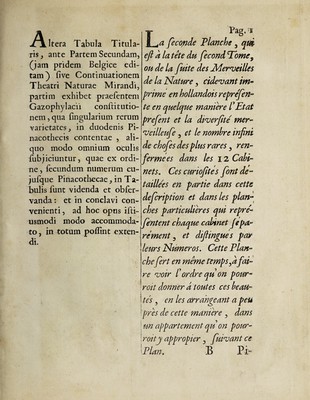 Altera Tabula Titula-
ris, ante Partem Secundam,
(jam pridem Belgice edi-
tam) ſive Continuationem
Theatri Naturae Mirandi,
partim exhibet praeſentem
Gazophylacii conſtitutio-
nem, qua ſingularium rerum
varietates, in duodenis Pi-
nacotheeis contentae, ali-
quo modo omnium oculis
ſubjiciuntur, quae ex ordi-
ne, ſecundum numerum cu-
juſque Pinacothecae, in Ta-
bulis ſunt videnda et obſer-
vanda: et in conclavi con-
venienti, ad hoc opus iſti-
usmodi modo accommoda-
to, in totum poſſint exten-
di.
Pag. 1
La ſeconde Planche, qui
eſt à la tête du ſecond Tome,
ou de la ſuite des Merveilles
de la Nature, cidevant im-
primé en hollandois repréſen-
te en quelque manière l'Etat
préſent et la diverſité mer-
veilleuſe, et le nombre infini
de choſes des plus rares, ren-
fermées dans les 12 Cabi-
nets. Ces curioſités ſont dé-
taillées en partie dans cette
deſcription et dans les plan-
ches particulières qui repré-
ſentent chaque cabinet ſépa-
rément, et diſtingues par
leurs Numeros. Cette Plan-
che ſert en même temps, à fai-
re voir l'ordre qu'on pour-
roit donner à toutes ces beau-
tés, en les arrangeant a peu
près de cette manière, dans
un appartement qu'on pour-
roit y appropier, ſuivant ce
Plan. B Pi-